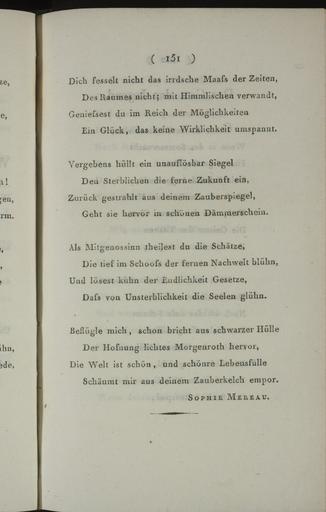 ze,
e,
a!
gen,
rm.
,
,
,
ühn,
ede,
( 151 )
Dich fesselt nicht das irrdsche Maaſs der Zeiten,
Des Raumes nicht; mit Himmlischen verwandt,
Genieſsest du im Reich der Möglichkeiten
Ein Glück, das keine Wirklichkeit umspannt.
Vergebens hüllt ein unauflösbar Siegel
Den Sterblichen die ferne Zukunft ein,
Zurück gestrahlt aus deinem Zauberspiegel,
Geht sie hervor in schönen Dämmerschein.
Als Mitgenossinn theilest du die Schätze,
Die tief im Schooſs der fernen Nachwelt blühn,
Und lösest kühn der Endlichkeit Gesetze,
Daſs von Unsterblichkeit die Seelen glühn.
Beflügle mich, schon bricht aus schwarzer Hülle
Der Hofnung lichtes Morgenroth hervor,
Die Welt ist schön, und schönre Lebensfülle
Schäumt mir aus deinem Zauberkelch empor.
SOPHIE MEREAU.